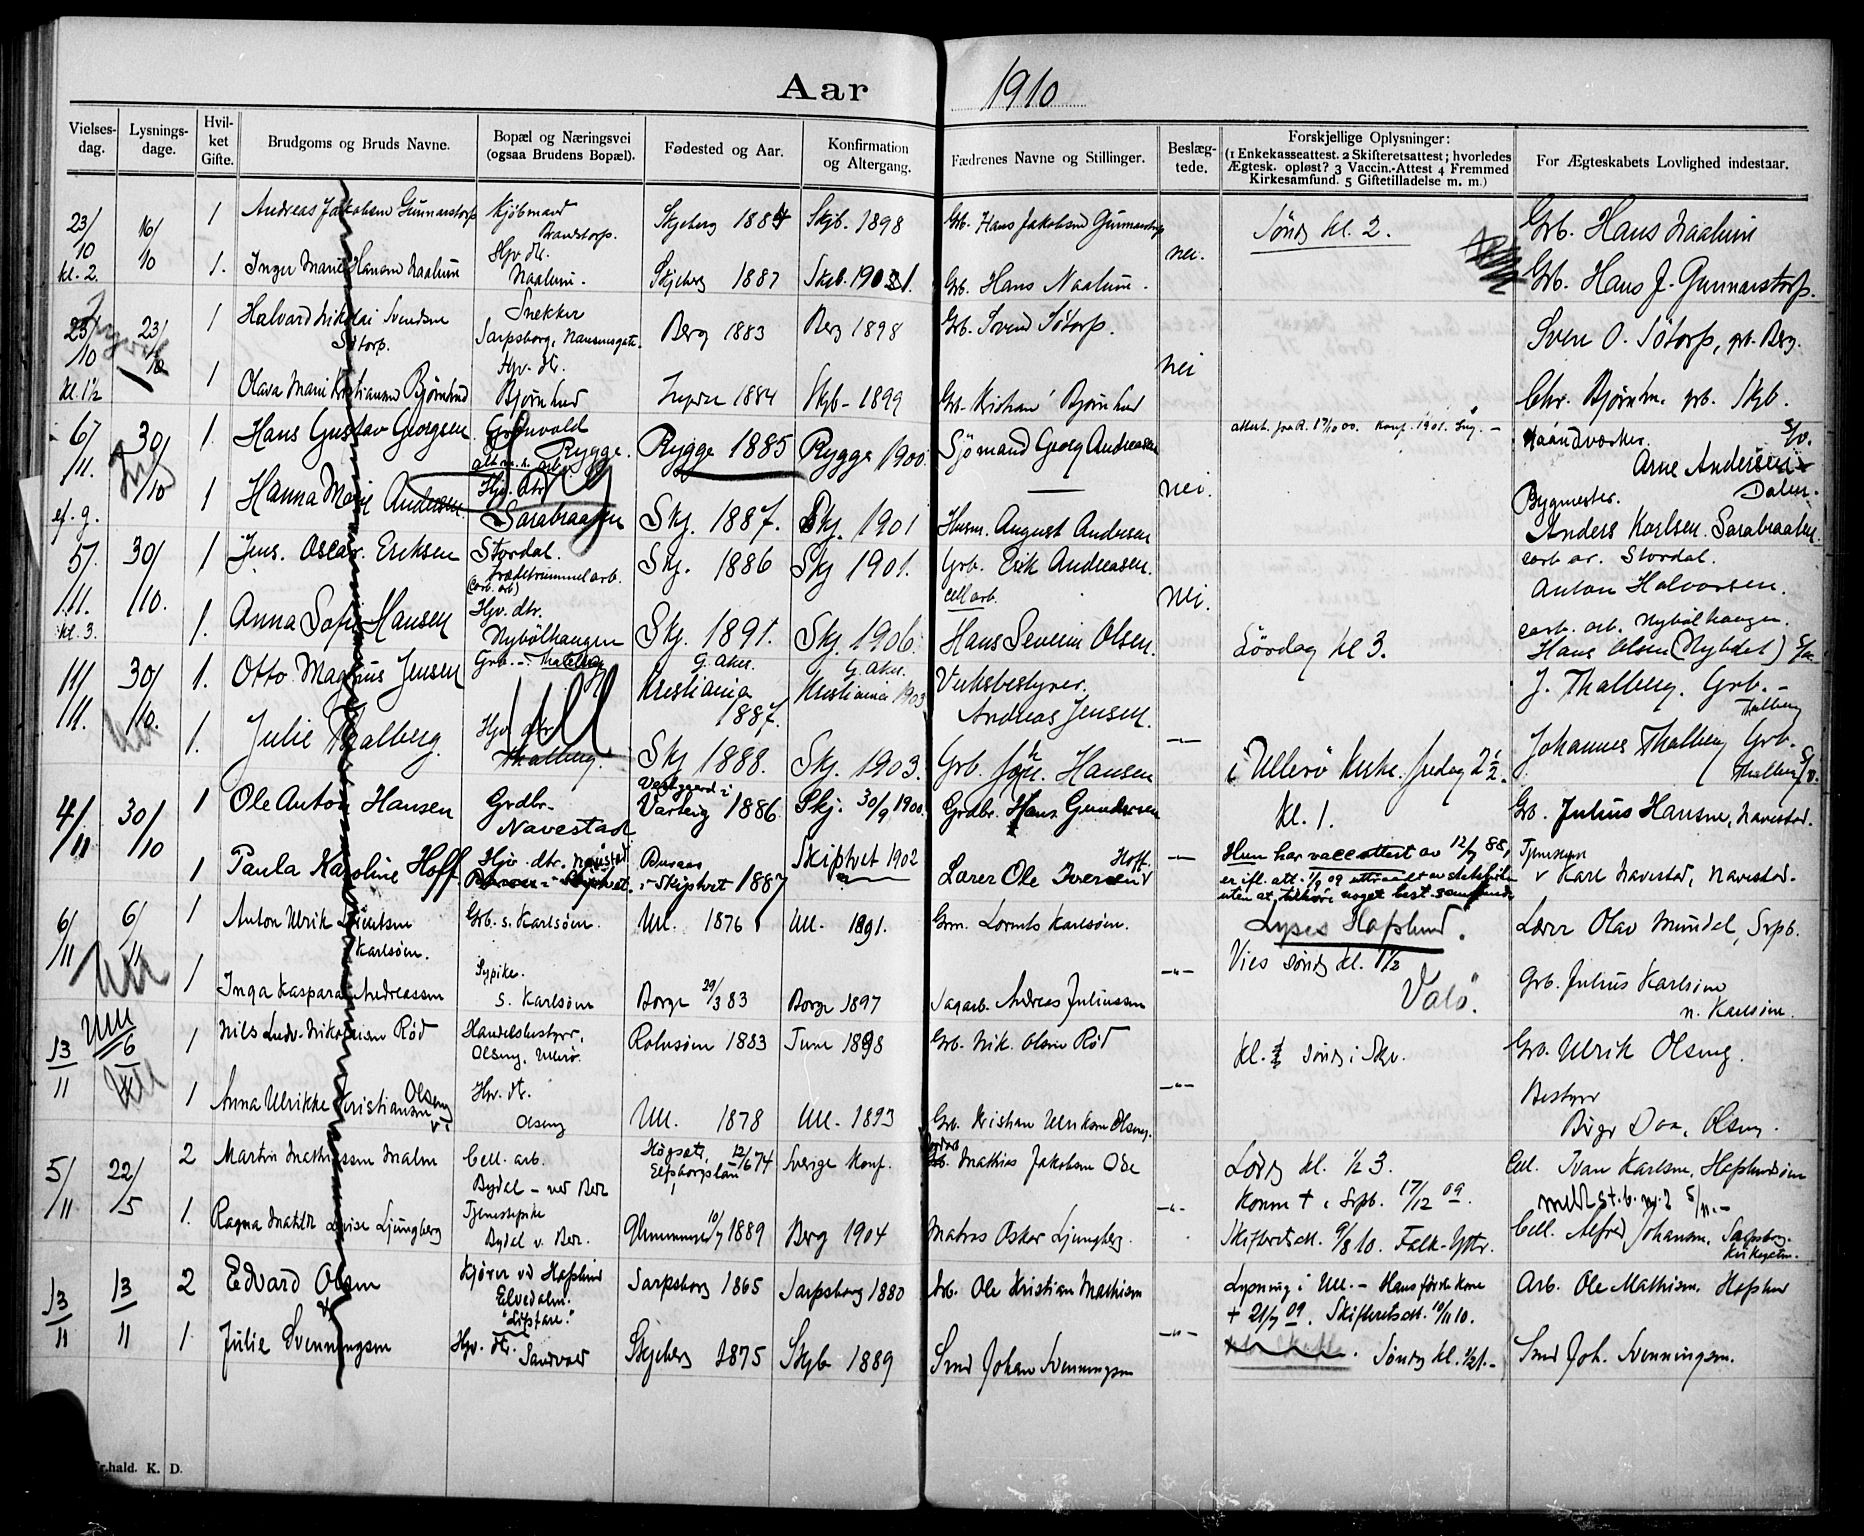 Aar 1910
Vielses-dag.
Lysnings-dage.
Hvil-ket Gifte.
Brudgoms og Bruds Navne.
Bopæl og Næringsvei (ogsaa Brudens Bopæl).
Fødested og Aar.
Konfirmation og Altergang.
Fædrenes Navne og Stillinger.
Beslæg-tede.
Forskjellige Oplysninger:
(1 Enkekasseattest. 2 Skifteretsattest; hvorledes
Ægtesk. opløst? 3 Vaccin.-Attest 4 Fremmed
Kirkesamfund. 5 Giftetilladelse m. m.)
For Ægteskabets Lovlighed indestaar.
23/10 kl. 2. 16/10 1 Andreas Jakobsen Gunnarstorp Kjøbmand Brandstorp. Skjeberg 1884 Skjb. 1898 Grb. Hans Jakobsen Gunnarstorp nei. Sönd. kl. 2. Grb. Hans Naalum
1. Inger Marie Hansen Naalum Hjv. dtr. Naalum. Skjeberg 1887 Skjb. 1901. Grb. Hans Naalum. Grb. Hans J. Gunnarstorp.
23/10 kl. 1½ 23/10 1 Halvard Nikolai Svendsen Sötorp. Snekker Sarpsborg, Nansensgate. Berg 1883 Berg 1898 Grb. Svend Sötorp. nei Sven O. Sötorp, grb. Berg.
1 Olava Marie Kristiansen Björnhud Hjv. dtr. Björnhud 1884 Skjb. 1899 Grb. Kristian Björnhud Chr. Björnhu. grb. Skjb.
6/11. ef. 9. 30/10 1. Hans Gustav Georgsen Grönvold Rygge. Rygge 1885 Rygge 1900. Sjömand Georg Andreasen nei. attest. fra R. 17/10 00. Konf. 1901. Haandværker. Arne Andersen Dalen.
1 Hanna Marie Andersen Hjv. dtr. Sarabraaten Skj. 1887. Skj. 1901 Husm. August Andersen Bygmester. Anders Karlsen. Sarabraaten
5/11. kl. 3. 30/10. 1 Jens Oscar Eriksen Stordal. Traadtrommelarb. (carb. arb) Skj. 1886 Skj 1901. Grb. Erik Andreasen. nei. carb ar. Stordal. Anton Halvorsen.
1. Anna Sofie Hansen Hjv. dtr. Nybölhaugen Skj. 1891. Skj. 1906. Cell arb. Hans Severin Olsen. Lördag kl 3. carb. arb. Nybölhaugen. Hans Olsen (Nybölet)
11/11. 30/10. 1. Otto Magnus Jensen Grb. - Thalberg G. aker. Kristiania 1887. G. aker. Kristiania 1903 Verksbestyrer. Andreas Jensen. J. Thalberg. Grb. - Thalberg
1. Julie Thalberg. Hjv. dtr Thalberg. Skj 1888. Skj. 1903. Grb. Joh. Hansen -"- i Ullerö Kirke. fredag 2½. Johannes Thalberg Grb. Thalberg
4/11 30/10 1 Ole Anton Hansen Grdbr. Navestad Varteig 1886. Skj. 30/9 1900. Grdbr. Hans Gundersen kl. 1. Gb. Julius Hansen, Navestad.
1 Paula Karoline Hoff Hjv. dtr. Navestad i Skiptvet 1887 Skiptvet 1902 Lærer Ole Iversen Hoff. -"- Hun har vacc attest av 12/7 88, er ifl. att. 1/9 09 uttraadt av statskirken uten at tilhöre noget best. samfund. v Karl Navestad, Navestad.
6/11 6/11 1 Anton Ulrik Lorentsen Karlsöen. Grb. s. Karlsöen. Ull. 1876 Ull. 1891. Grm. Lorents Karlsöen. Lyses Hafslund. Lærer Olav Mundal, Srpb.
1 Inga Kaspara Andreassen Sypike. s. Karlsöen Borge 29/3 83 Borge 1897 Sagarb. Andreas Juliussen -"- Vies sönd. kl. 1½ Valö. Grb. Julius Karlsöen n. Karlsöen.
13/11 6/11 1 Nils Ludv. Nikolaisen Röd Handelsbestyrer, Olseng, Ullerö. Rolvsöen 1883 Tune 1898 Grb. Nik. Olsen Röd kl. sönd. i Skj. Grb. Ulrik Olseng.
1 Anna Ulrikke Kristiansen Olseng Hjv. dtr. Olseng Ull. 1878 Ull. 1893 Grb. Kristian Ulriksen Olseng. -"- Bestyrer Birger Daa, Olseng.
5/11 22/5 2 Martin Mathiassen Malm Cell. arb. Bydal - ved Berg Högsäter, Elfsborgslän 12/6 74 Sverige Konf. Mathias Jakobsen Ode Lörd. kl. ½ 3. Cell. Ivar Karlsen, Hafslundsöen
1. Ragna Mathilde Lovise Ljungberg Tjenestepike Bydal v. Berg. Glemminge 10/7 1889 Berg 1904 Matros Oskar Ljungberg. -"- Konen + i Srpb. 17/12 09. Skifteretsatt. 9/8 10. Cell. Alfred Johansen, Sarpsborg. Kirkegaten.
13/11 13/11 2 Edvard Olsen & Kjörer ved Hafslund Elvedalen. Sarpsborg 1865 Sarpsborg 1880 Arb. Ole Kristian Mathisen Lysning i Ull. - Hans förste kone + 21/7 09. Skifteretsatt. 10/11 10. Arb. Ole Mathisen, Hafslund
1. Julie Svenningsen Hjv. dtr. Sandvold Skjeberg 1875 Skjb 1889 Smed Johan Svenningsen -"- Sönd. kl. ½1. - Smed Joh. Svenningsen.
Fr.hald. K. D.